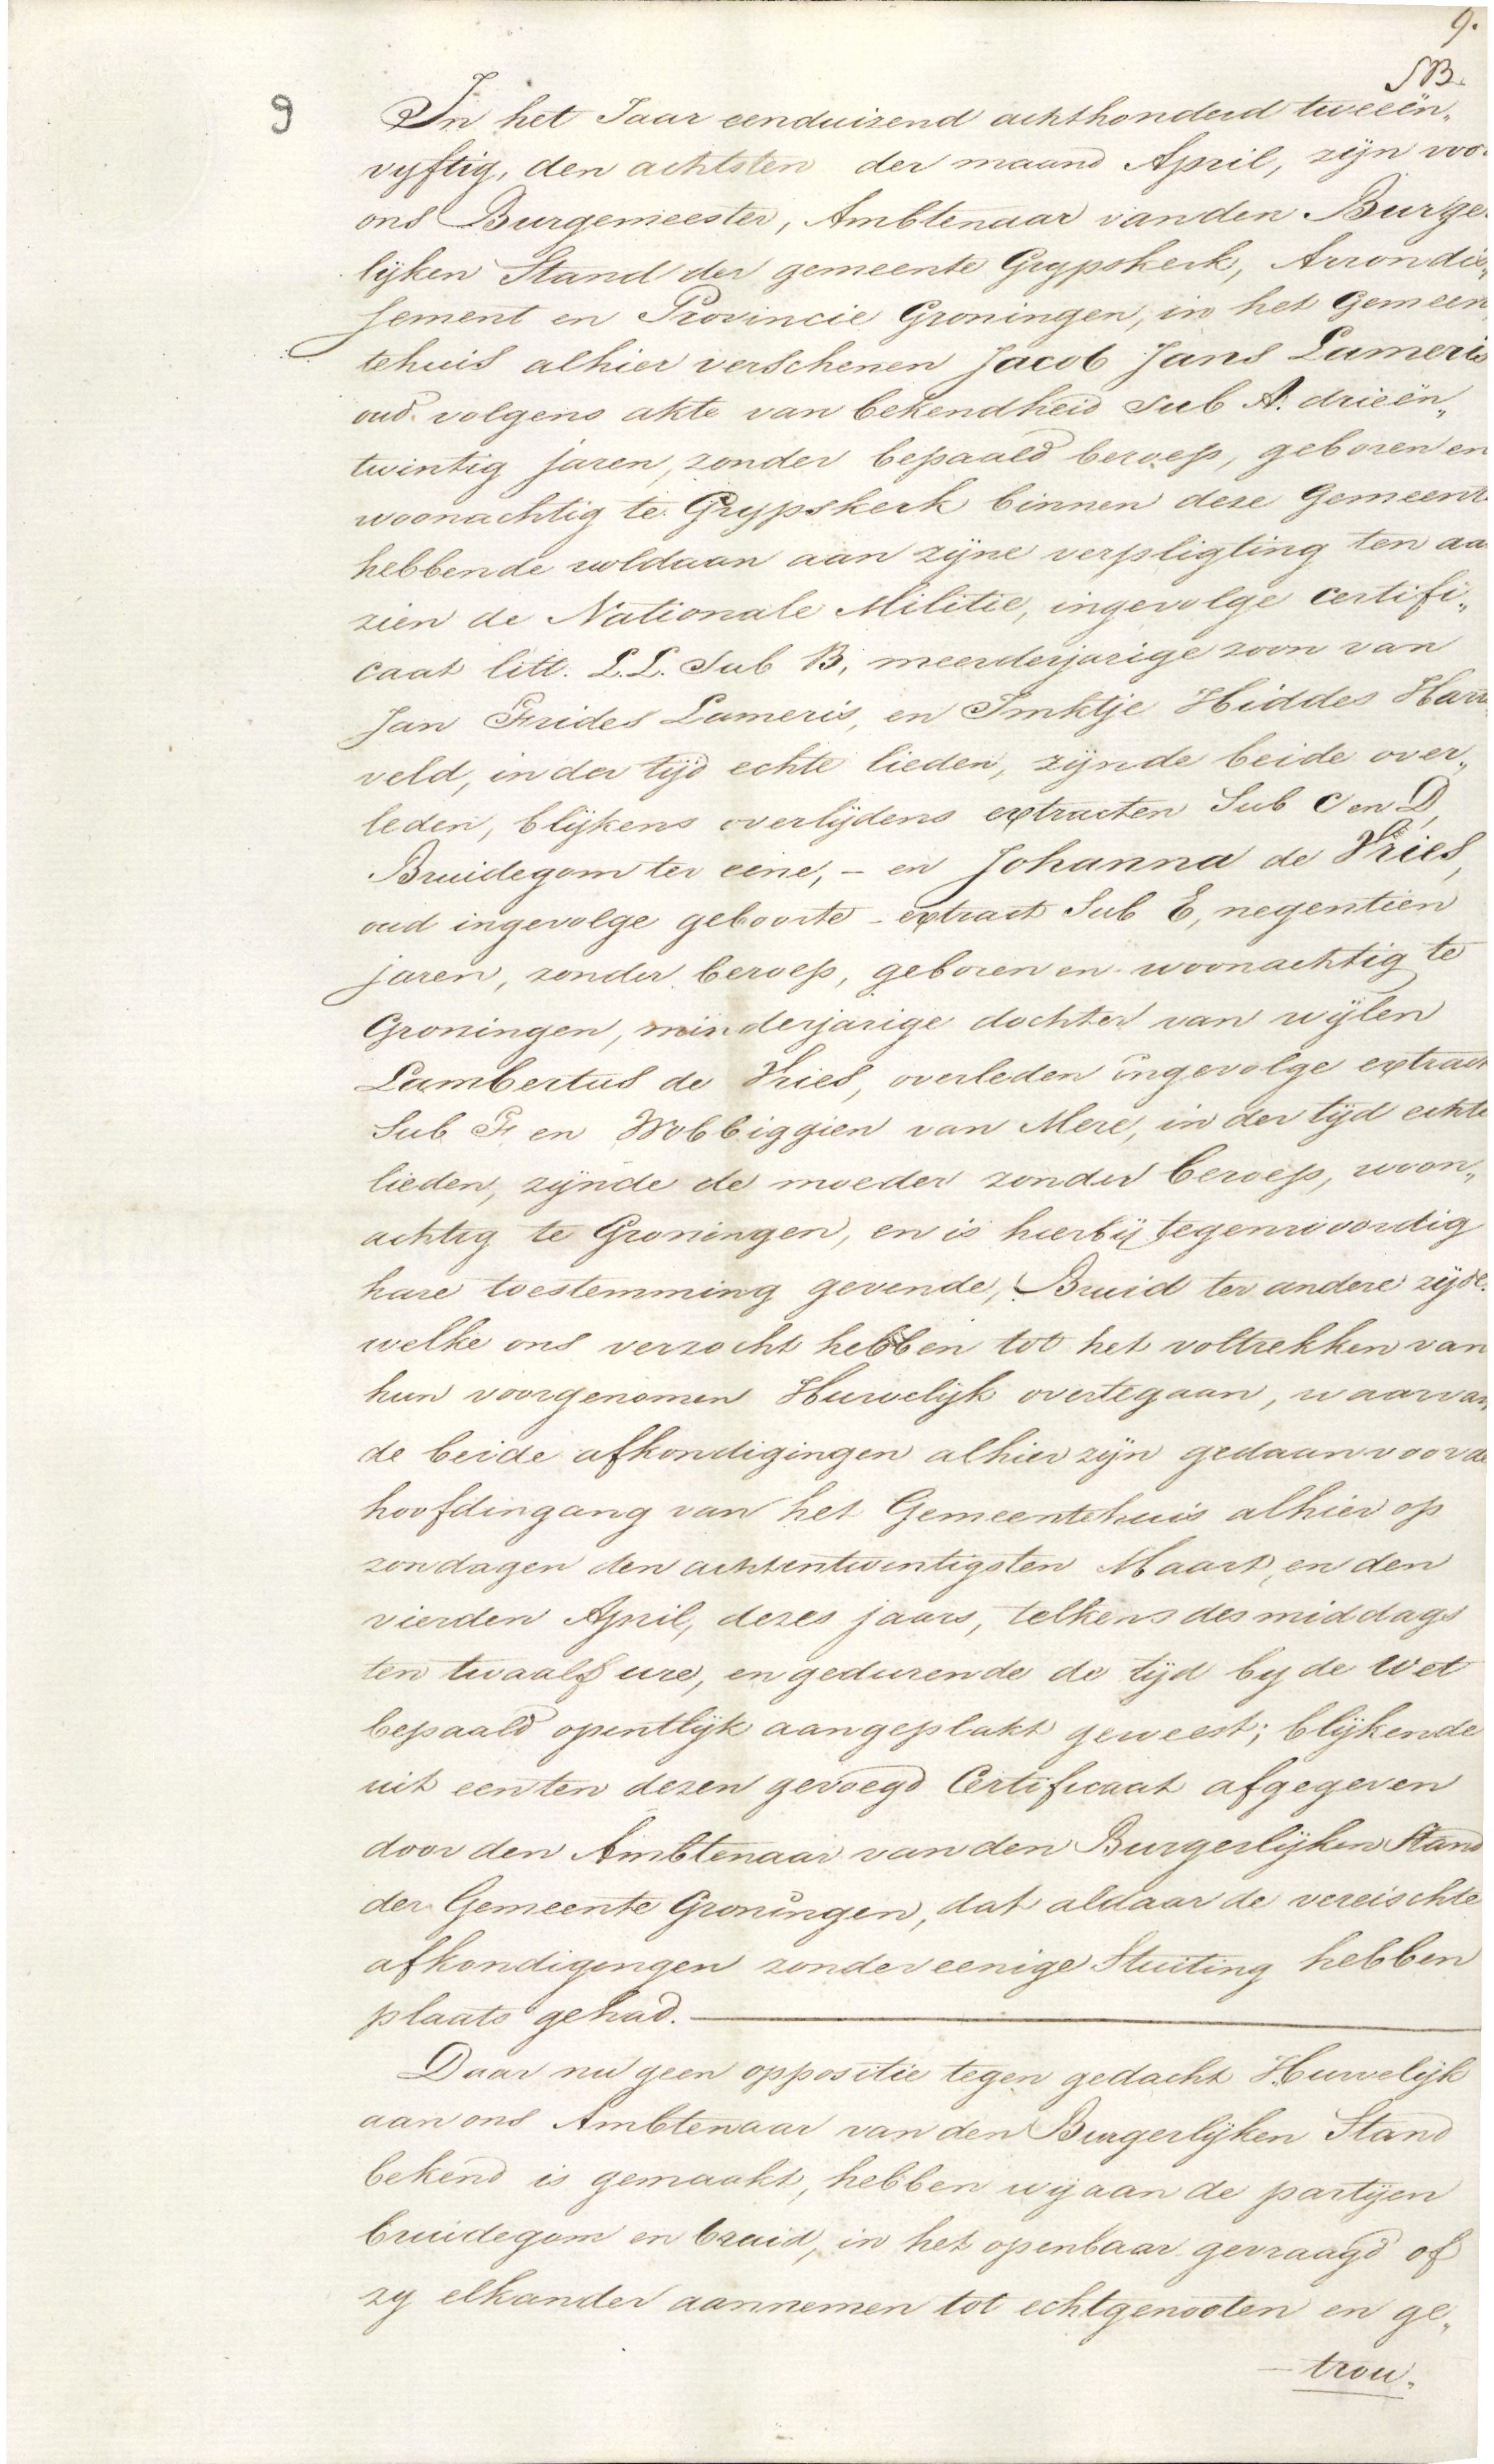 9.
SB.
9
In het Jaar eenduizend achthonderd tweeën„
vyftig, den achtsten der maand April, zijn voor
ons Burgemeester, Ambtenaar van den Burger
lijken Stand der gemeente Grypskerk, Arrondis„
sement en Provincie Groningen, in het Gemeen
tehuis alhier verschenen Jacob Jans Lameris
oud volgens akte van bekendheid Sub A. drieën„
twintig jaren, zonder bepaald beroep, geboren en
woonachtig te Grypskerk binnen deze Gemeente
hebbende voldaan aan zijne verpligting ten aan
zien de Nationale Militie, ingevolge certifi„
caat litt. L.L. Sub B, meerderjarige zoon van
Jan Freides Lameris, en Imktje Hiddes
veld, in der tijd echte lieden, zijnde beide over„
leden, blijkens overlijdens extracten Sub C en D,
Bruidegom ter eene, – en Johanna de Vries,
oud ingevolge geboorte-extract Sub E, negentien
jaren, zonder beroep, geboren en woonachtig te
Groningen, minderjarige dochter van wijlen
Lambertus de Vries, overleden ingevolge extract
Sub F en Wobbiggien van Mere, in der tijd echte
lieden, zijnde de moeder zonder beroep, woon„
achtig te Groningen, en is hierbij tegenwoordig
hare toestemming gevende, Bruid ter andere zijde.
welke ons verzocht hebben tot het voltrekken van
hun voorgenomen Huwelijk overtegaan, waarvan
de beide afkondigingen alhier zijn gedaan voor de
hoofdingang van het Gemeentehuis alhier op
zondagen den achtentwintigsten Maart, en den
vierden April, dezes jaars, telkens des middags
ten twaalf ure, en gedurende de tijd by de Wet
bepaald opentlijk aangeplakt geweest; blijkende
uit een ten dezen gevoegd Certificaat afgegeven
door den Ambtenaar van den Burgerlijken Stand
der Gemeente Groningen, dat aldaar de vereischte
afkondigingen zonder eenige Stuiting hebben
plaats gehad.
Daar nu geen oppositie tegen gedacht Huwelijk
aan ons Ambtenaar van den Burgerlijken Stand
bekend is gemaakt, hebben wij aan de partijen
bruidegom en bruid, in het openbaar gevraagd of
zy elkander aannemen tot echtgenooten en ge„
trou„